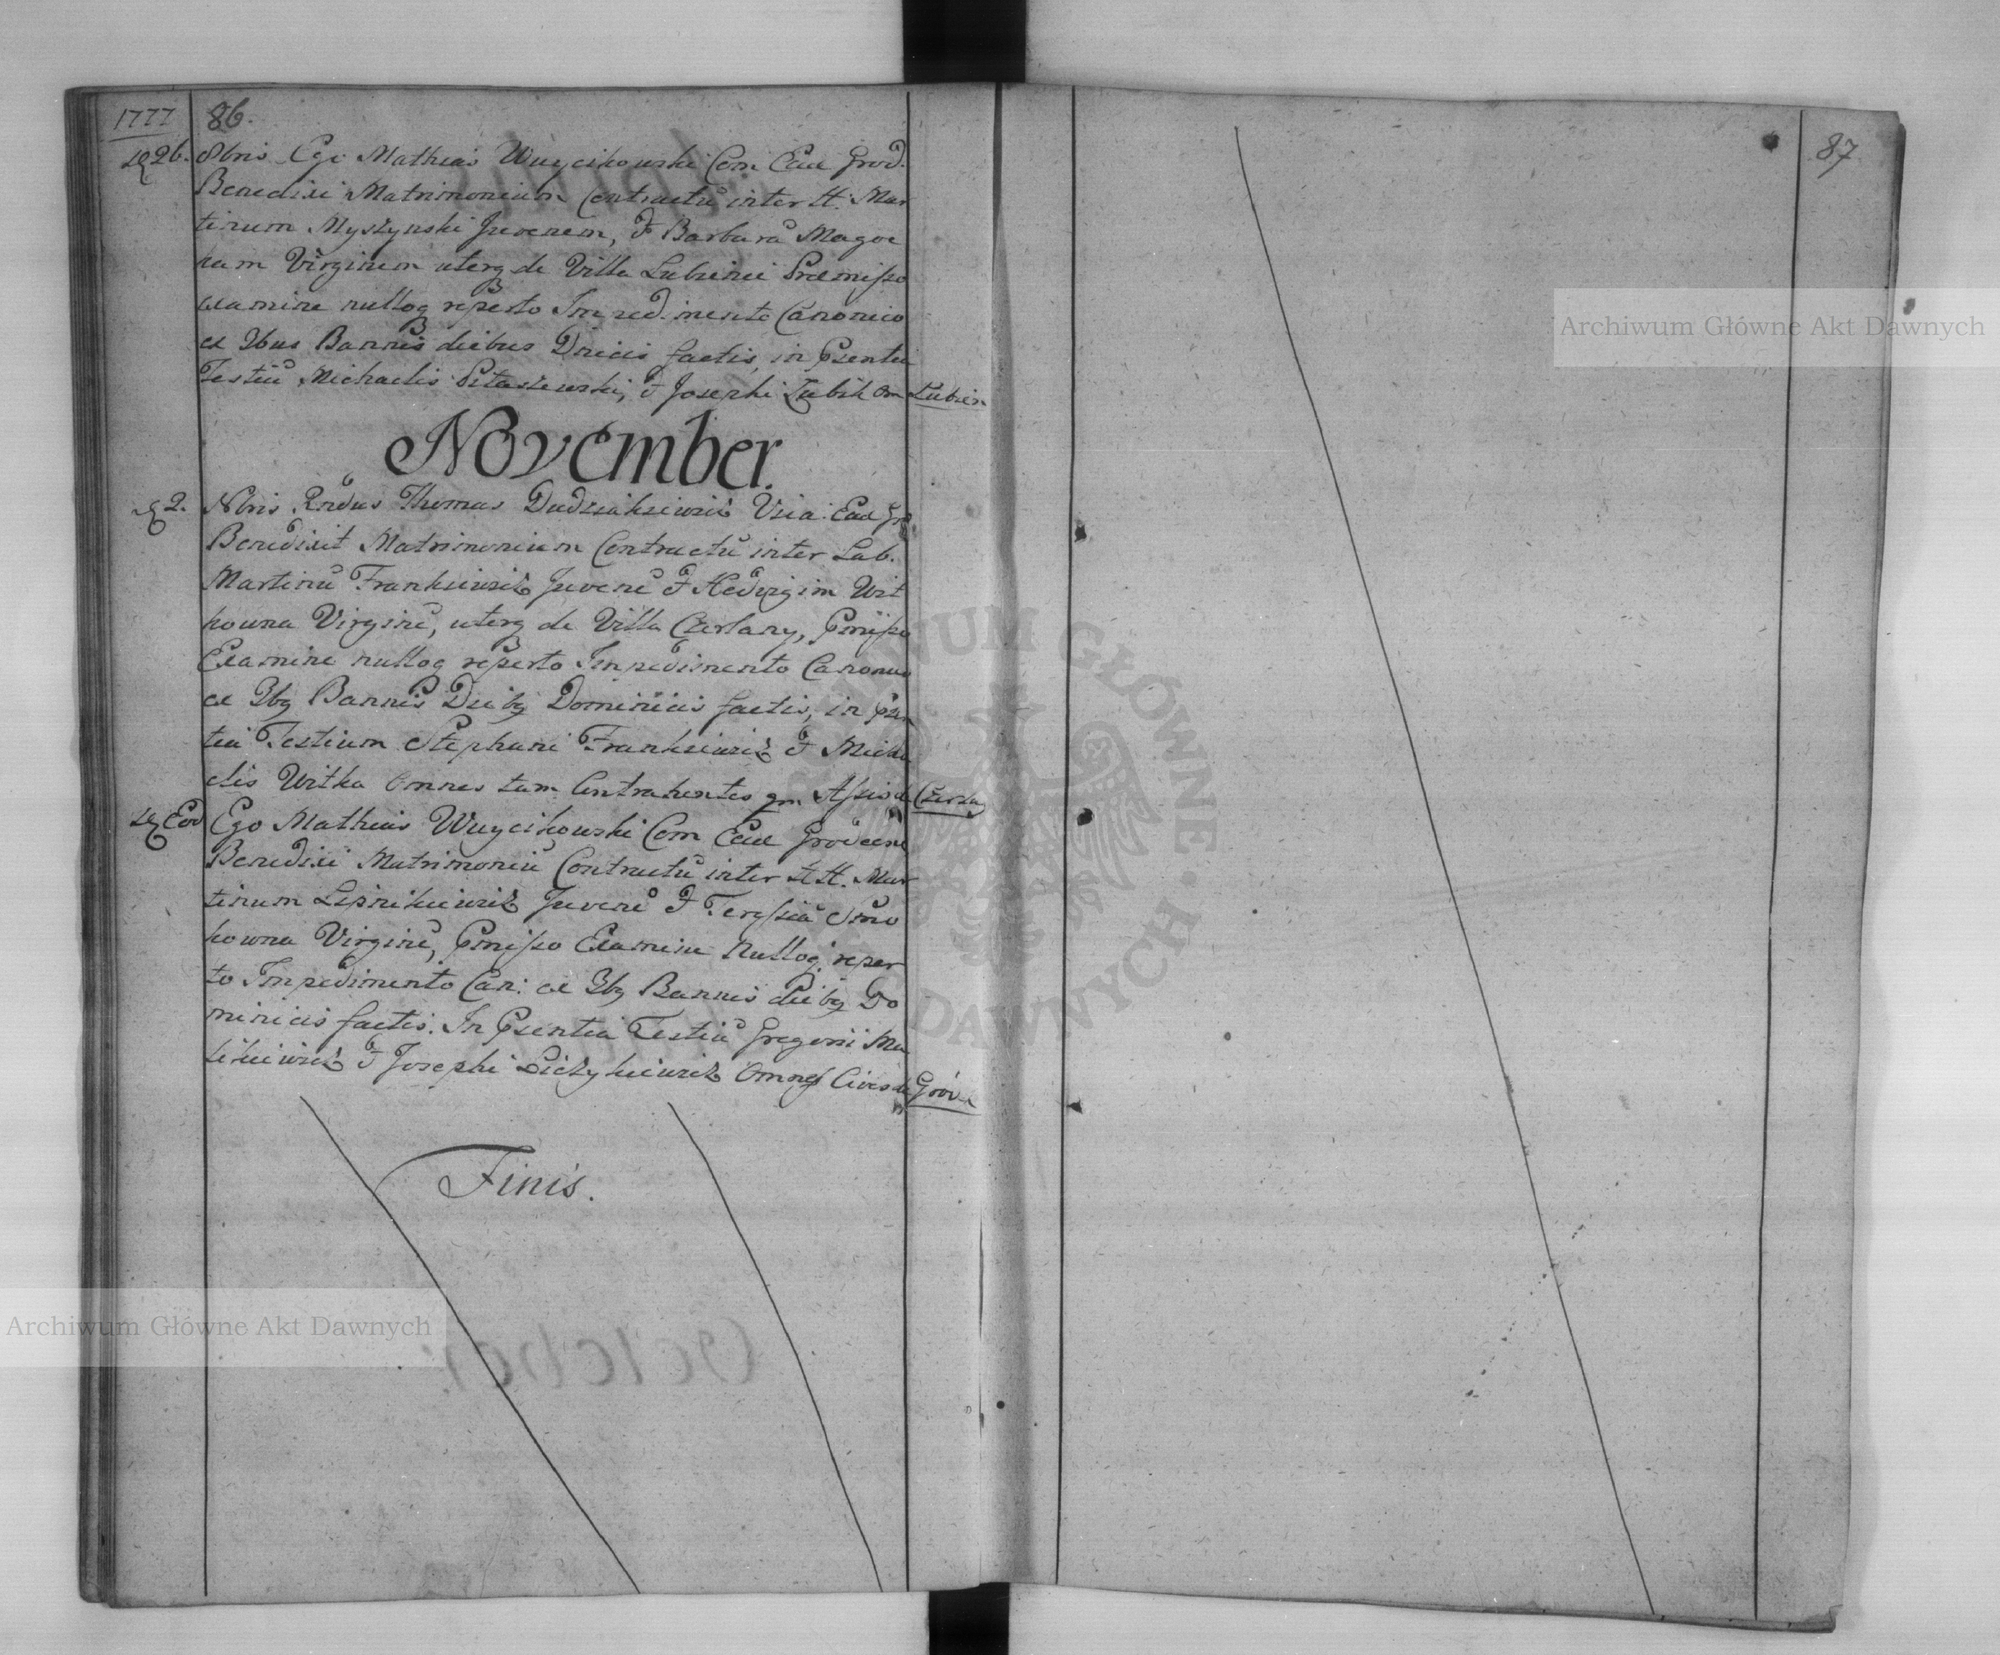 1777 86.
26. 8bris Ego Mathias Wuycikowski Com Ecae Grod.
Benedixi Matrimonium Contractũ inter H. Mar
tinum Myszynski Juvenem, & Barbarã Mago
nam Virginem uterq de Villa Lubienie Præmisso
examine nulloq reperto Impedimento Canonico
et 3bus Bannis diebus Dnicis factis, in Psentia
Testiũ Michaelis Ptaszewski, & Josephi Zubik Om Lubień
November.
2. Nbris Rndus Thomas Dudziakiewicz Vica. Ecae Gr
Benedixit Matrimonium Contractũ inter Lab.
Martinũ Frankiewicz Juvenẽ & Hedvigim Wit
kowna Virginẽ, uterq de Villa Czerlany, Pmisso
Examine nulloq reperto Impedimento Canonico
et 3bq Bannis Diebq Dominicis factis, in Psen
tia Testium Stephani Frankiewicz & Micha
elis Witka Omnes tam Contrahentes qm Assis de Czerla
Eod Ego Mathias Wuycikowski Com Ecae Grodecen
Benedixi Matrimoniũ Contractũ inter HH. Mar
tinum Lipnikiewicz Juvenẽ & Teressiã Smo
kowna Virginẽ, Pmisso Examine Nulloq reper
to Impedimento Can: et 3bq Bannis diebq Do
minicis factis. In Psentia Testiũ Gregorii Ma
likiewicz & Josephi Liczykiewicz Omnes Cives de Grod.
Finis.
87
Archiwum Główne Akt Dawnych
ARCHIWUM GŁÓWNE AKT DAWNYCH
Archiwum Główne Akt Dawnych